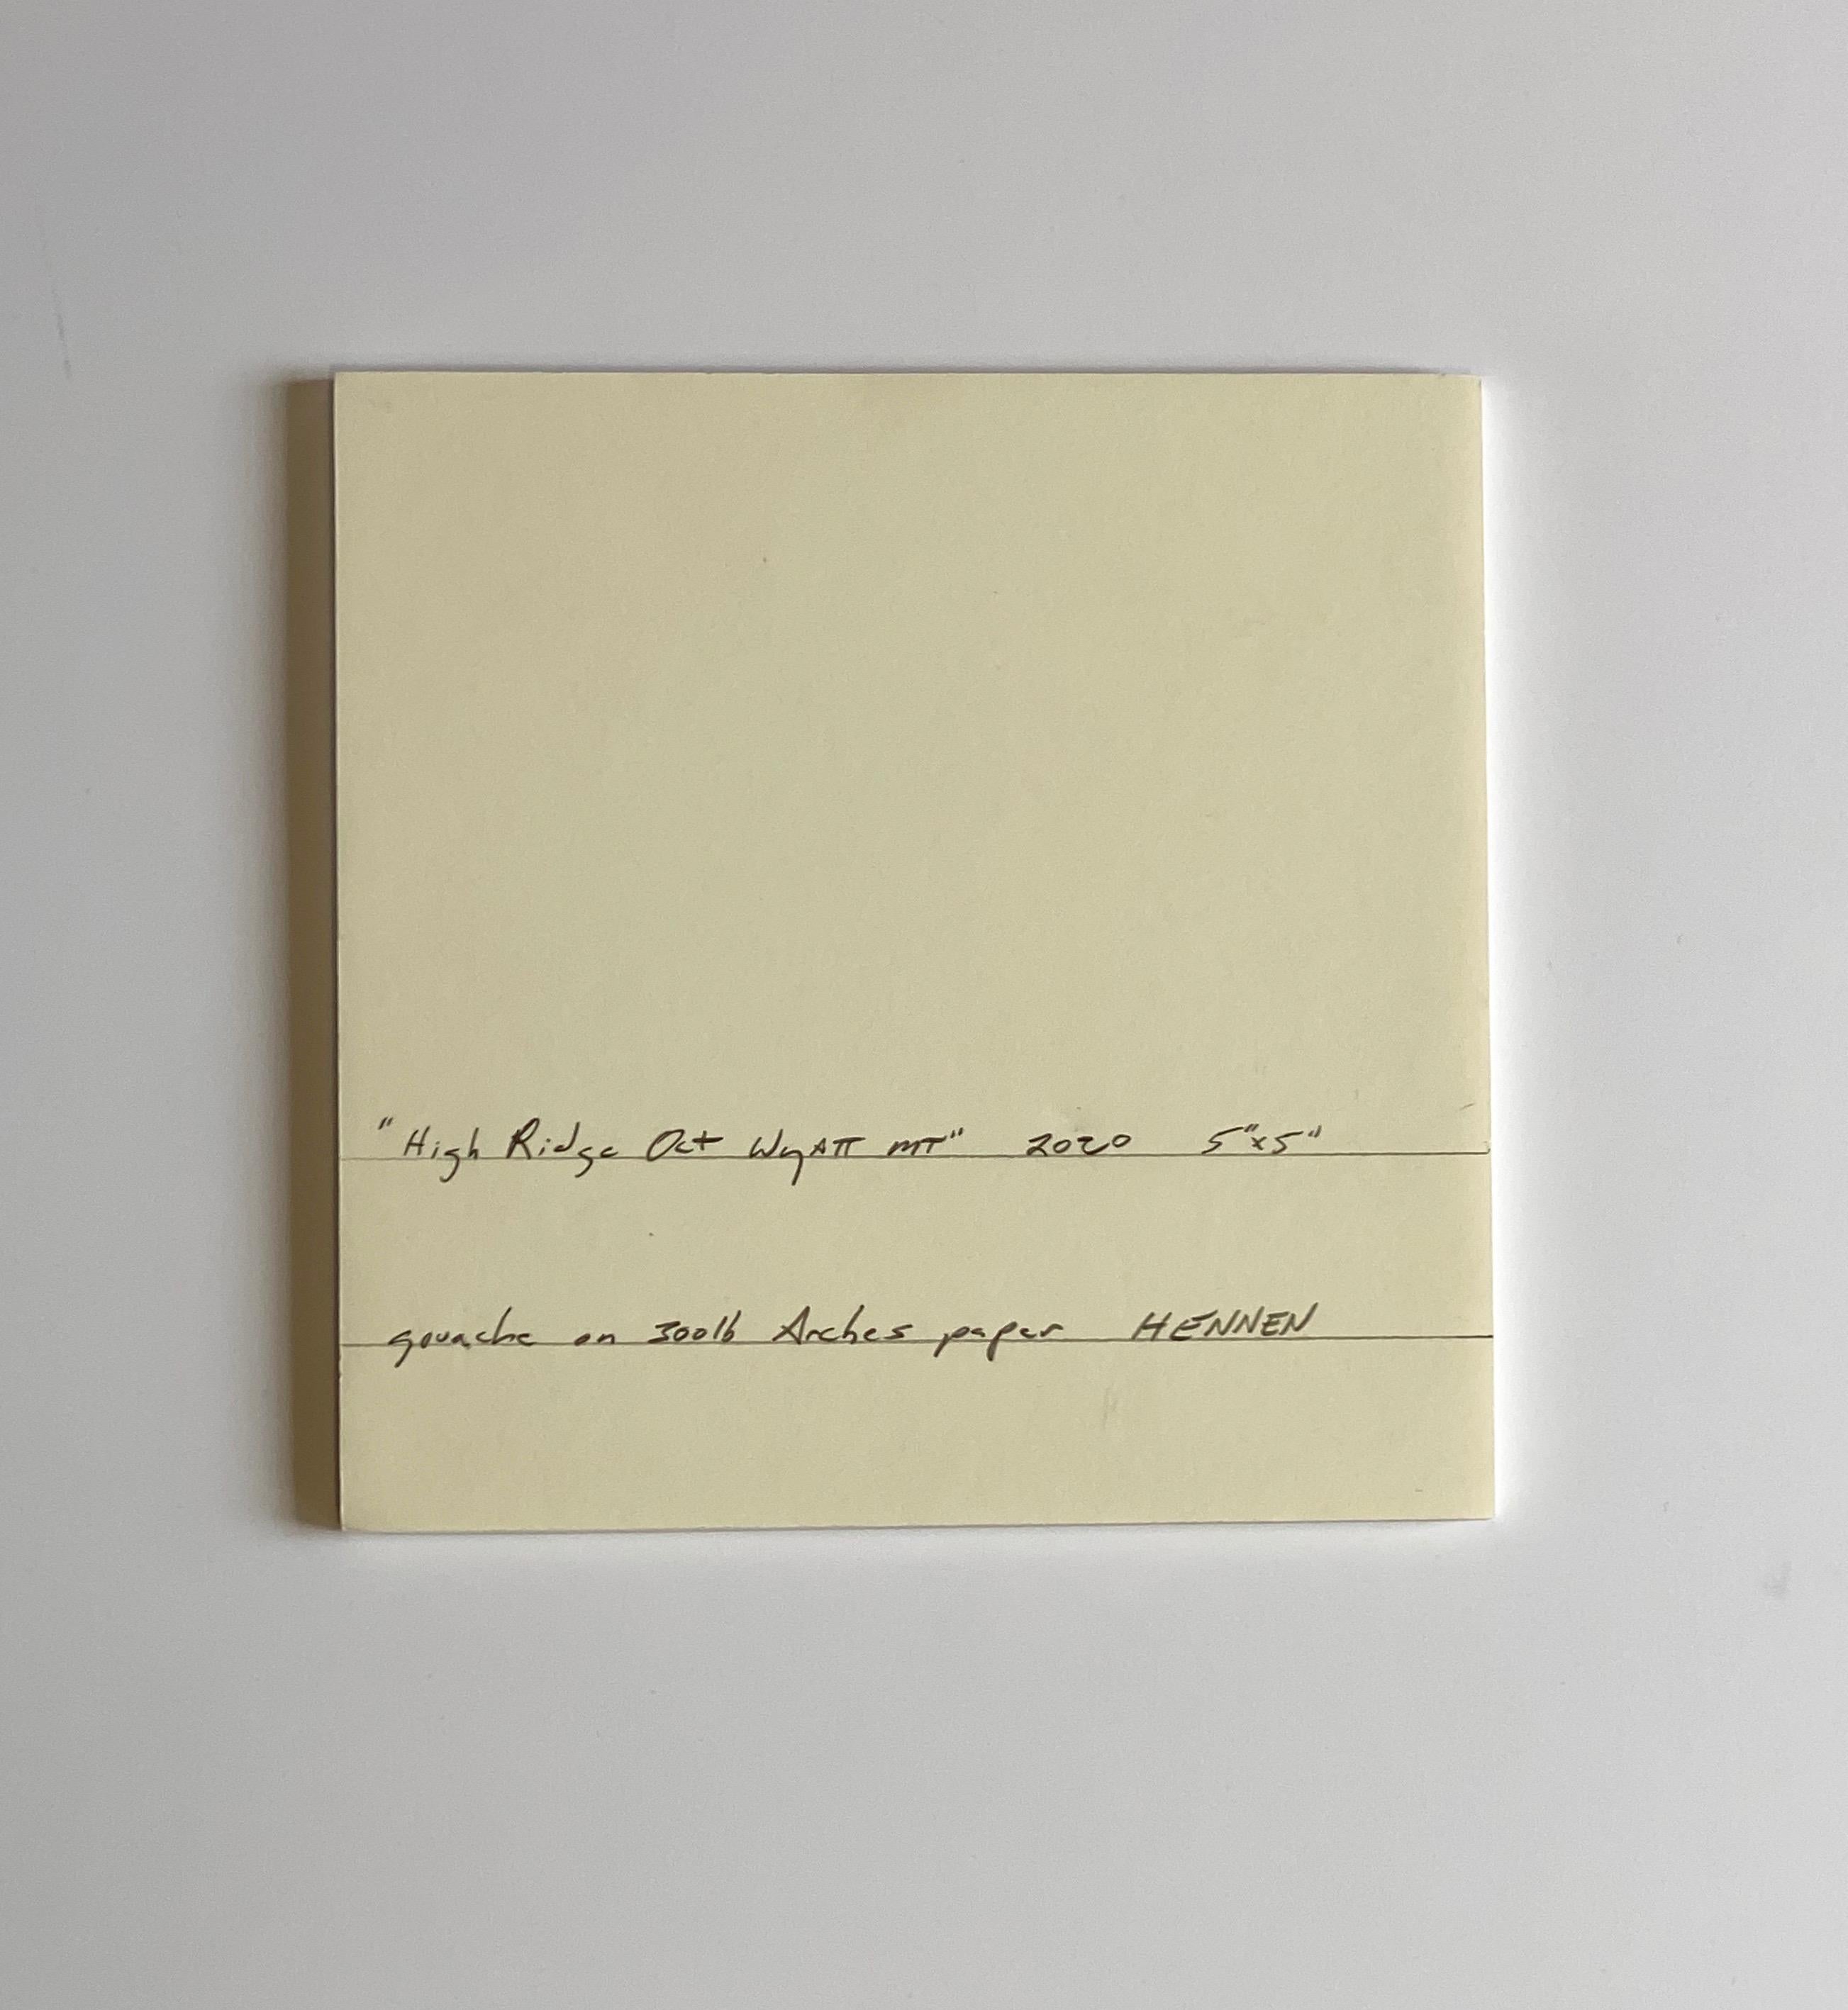 "High Ridge Oct Wyatt MT" 2020 5"x5"
gouache on 300lb Arches paper HENNEN